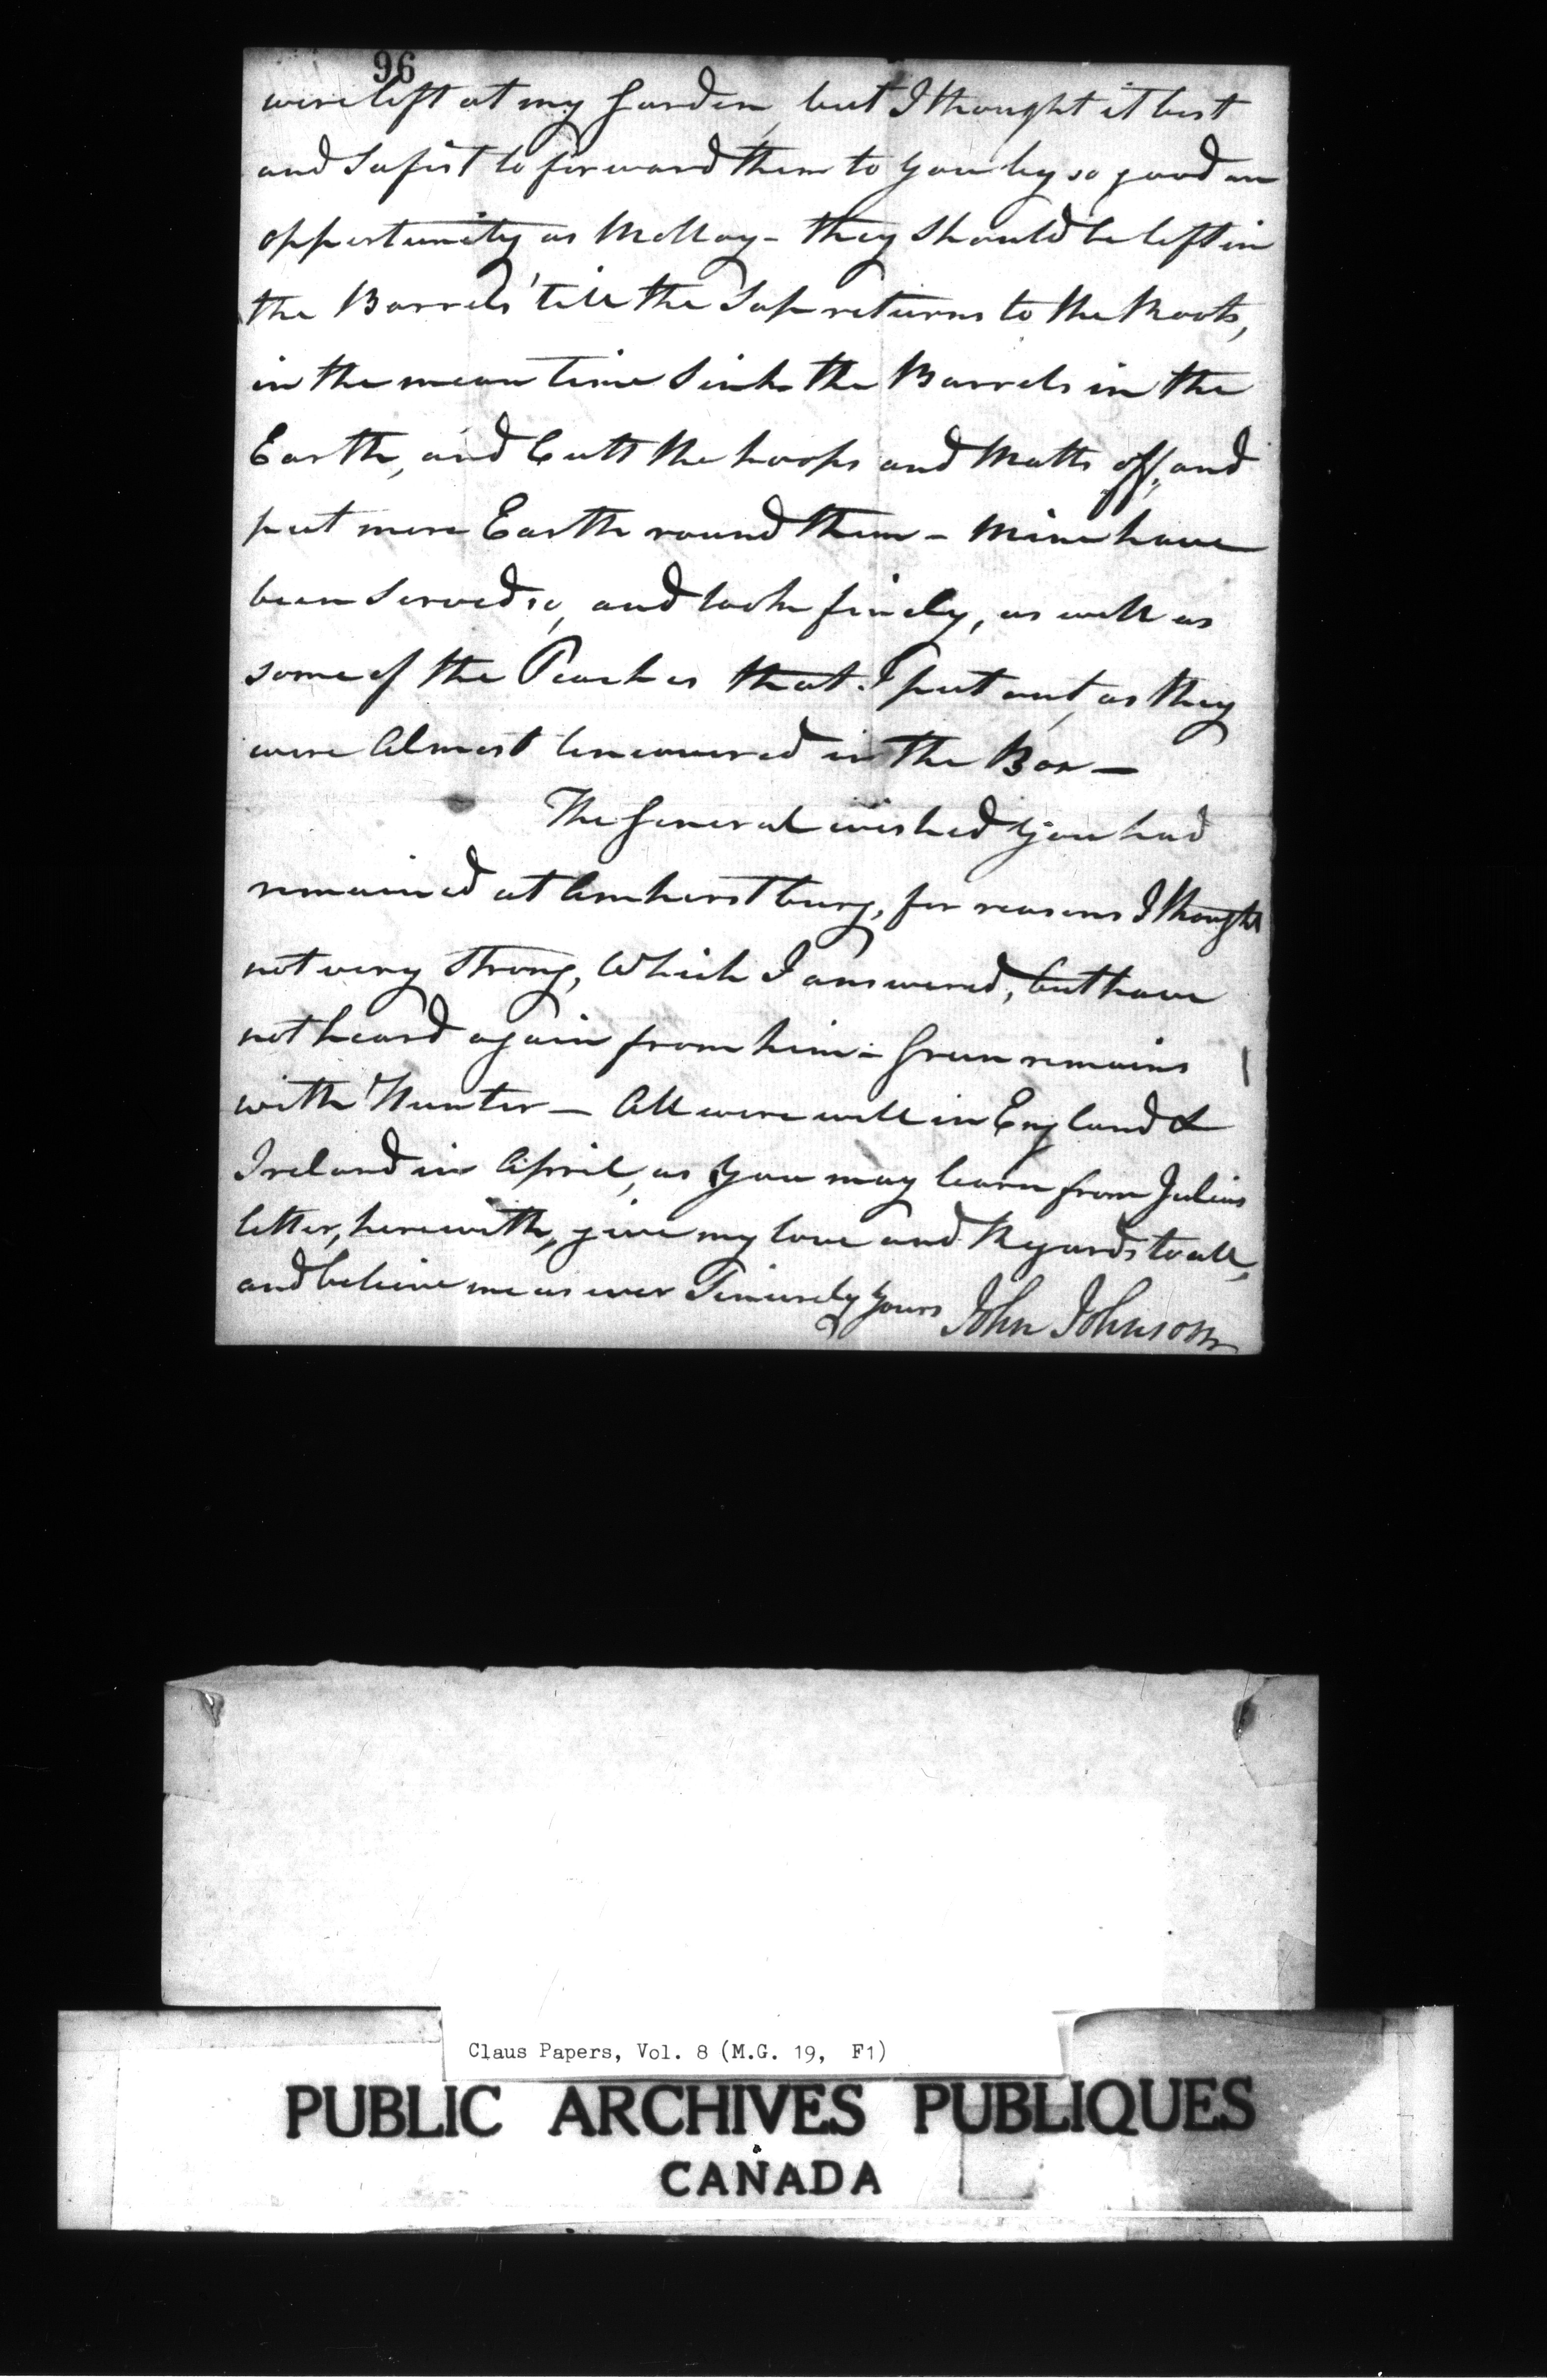 96
were left at my Garden, but I thought it best
and Safest to forward them to you by so good an
opportunity as McKay - they should be left in
the Barrels 'till the Sap returns to the Roots,
in the mean time Sink the Barrels in the
Earth, and Cutt the hoops and Matts off, and
put more Earth round them - Mine have
been Served so, and look finely, as well as
some of the Peaches that I put out, as they
were Almost Uncovered in the Box —
The General wished you had
remained at Amherstburg, for reasons I thought
not very Strong, Which I answered, but have
not heard again from him - Green remains
with Hunter — All were well in England &
Ireland in April, as you may learn from Julius
letter, herewith, give my love and Regards to all,
and believe me as ever Sincerely yours John Johnson
Claus Papers, Vol. 8 (M.G. 19, F1)
PUBLIC ARCHIVES PUBLIQUES
CANADA